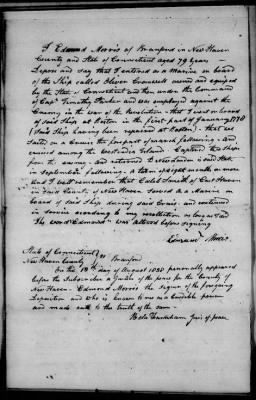 I Edmund Morris of Branford in New Haven
County and State of Connecticut aged 79 years
Depose and Say that I entered as a Marine on board
of the Ship called Oliver Cromwell owned and equipped
by the State of Connecticut and then under the Command
of Capt Timothy Parker and was employed against the
Enemy in the war of the Revolution – that I went on board
of said Ship at Boston in the first part of January 1778
(Said Ship having been repaired at Boston) – that we
Sailed on a Cruise the forepart of march following – and
cruised among the West India Islands – Captured two Ships
from the enemy – and returned to New London in said State
in September following – a term of eight months or more
and I well remember that Caleb Smith of East Haven
in said County of New Haven served as a Marine on
board of said Ship during said Cruise – and continued
in service according to my recollection as long as I did
The word "Edmund" was altered before signing
Edmund Morris
State of Connecticut
New Haven County } ss Branford
On the 18th day of August 1830 personally appeared
before the Subscriber a Justice of the peace for the County of
New Haven – Edmund Morris the signer of the foregoing
Deposition and who is known to me as a Credible person
and made oath to the truth of the same –
Justice of peace